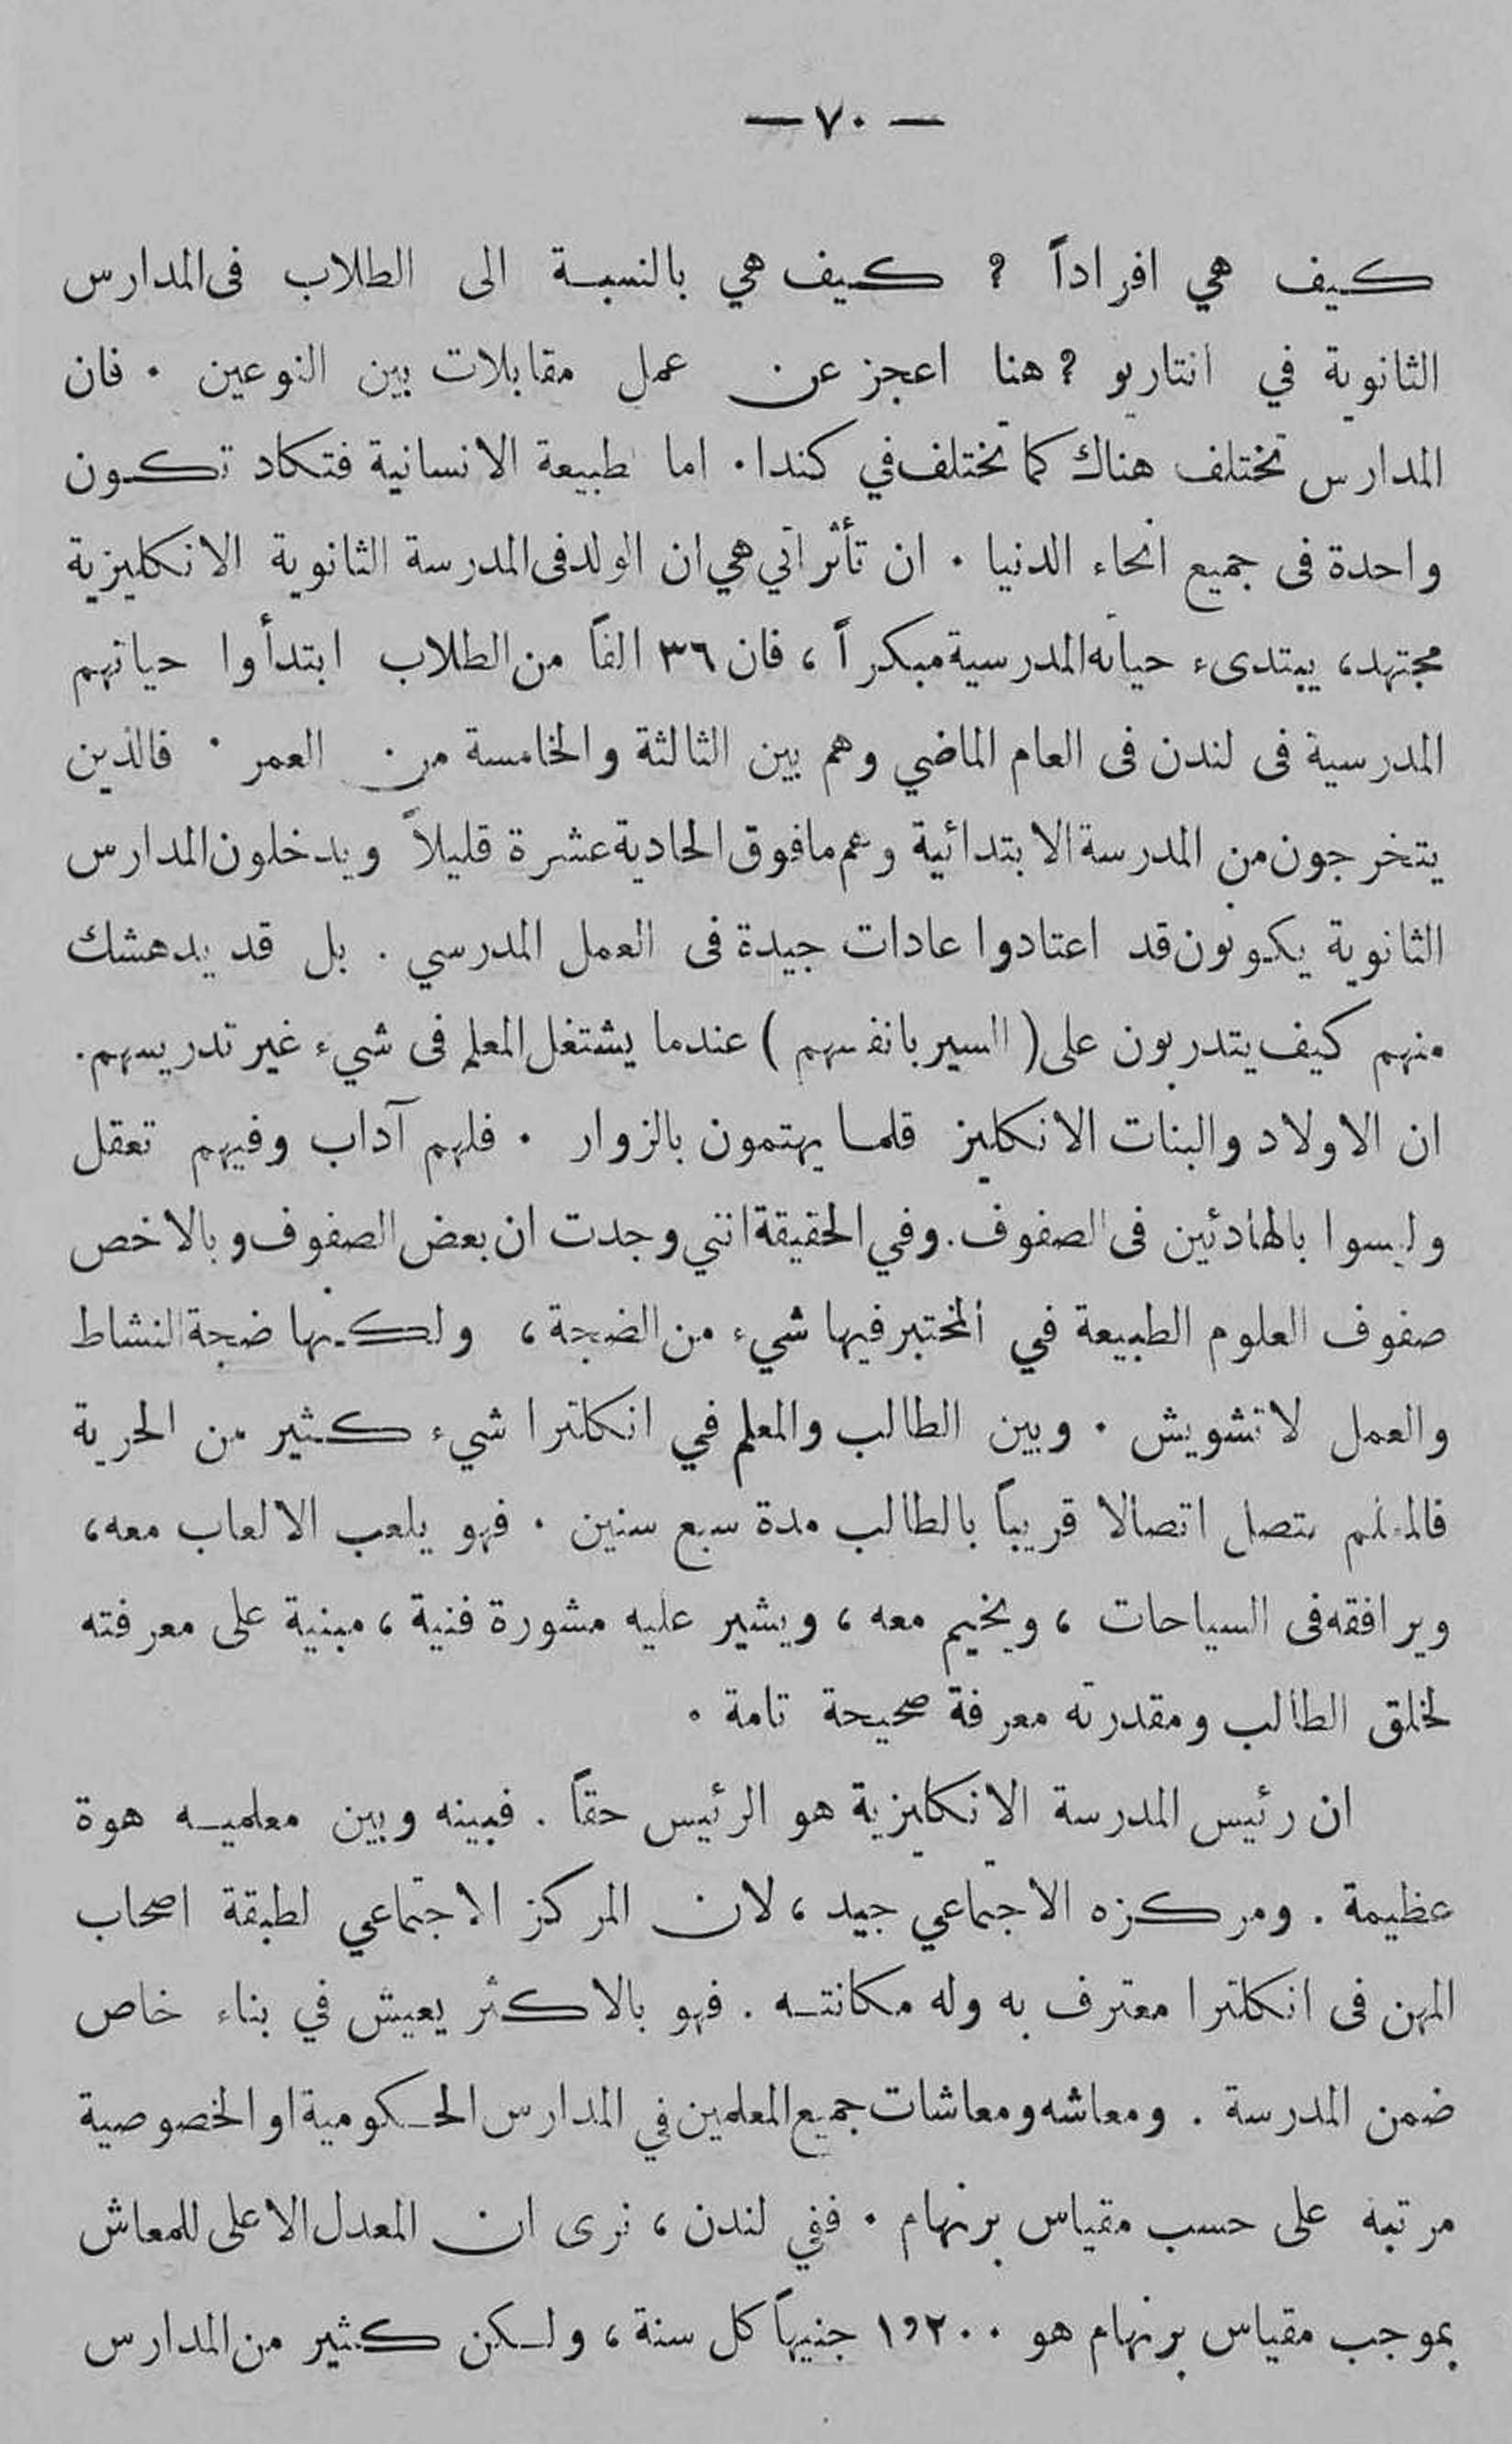 — ٧٠ —
كيف هي افراداً ؟ كيف هي بالنسبة الى الطلاب فى المدارس
الثانوية في انتاريو ؟ هنا اعجز عن عمل مقابلات بين النوعين . فان
المدارس تختلف هناك كما تختلف في كندا . اما طبيعة الانسانية فتكاد تكون
واحدة فى جميع انحاء الدنيا . ان تأثراتي هي ان الولد فى المدرسة الثانوية الانكليزية
مجتهد ، يبتدىء حياته المدرسية مبكراً ، فان ٣٦ الفاً من الطلاب ابتدأوا حياتهم
المدرسية فى لندن فى العام الماضي وهم بين الثالثة والخامسة من العمر . فالذين
يتخرجون من المدرسة الابتدائية وهم مافوق الحادية عشرة قليلاً ويدخلون المدارس
الثانوية يكونون قد اعتادوا عادات جيدة فى العمل المدرسي . بل قد يدهشك
منهم كيف يتدربون على ( السير بانفسهم ) عندما يشتغل المعلم فى شيء غير تدريسهم .
ان الاولاد والبنات الانكليز قلما يهتمون بالزوار . فلهم آداب وفيهم تعقل
وليسوا بالهادئين فى الصفوف . وفي الحقيقة انني وجدت ان بعض الصفوف وبالاخص
صفوف العلوم الطبيعة في المختبر فيها شيء من الضجة ، ولكنها ضجة النشاط
والعمل لا تشويش . وبين الطالب والمعلم في انكلترا شيء كثير من الحرية
فالمعلم يتصل اتصالا قريباً بالطالب مدة سبع سنين . فهو يلعب الالعاب معه ،
ويرافقه فى السياحات ، ويخيم معه ، ويشير عليه مشورة فنية ، مبنية على معرفته
لخلق الطالب ومقدرته معرفة صحيحة تامة .
ان رئيس المدرسة الانكليزية هو الرئيس حقاً . فبينه وبين معلميه هوة
عظيمة . ومركزه الاجتماعي جيد ، لان المركز الاجتماعي لطبقة اصحاب
المهن فى انكلترا معترف به وله مكانته . فهو بالاكثر يعيش في بناء خاص
ضمن المدرسة . ومعاشه ومعاشات جميع المعلمين في المدارس الحكومية او الخصوصية
مرتبة على حسب مقياس برنهام . ففي لندن ، نرى ان المعدل الاعلى للمعاش
بموجب مقياس برنهام هو ١٫٢٠٠ جنيهاً كل سنة ، ولكن كثير من المدارس